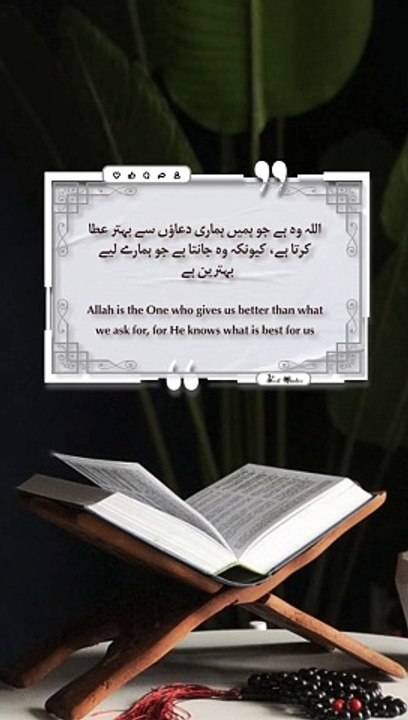 اللہ وہ ہے جو ہمیں ہماری دعاؤں سے بہتر عطا
کرتا ہے، کیونکہ وہ جانتا ہے جو ہمارے لیے
بہترین ہے
Allah is the One who gives us better than what
we ask for, for He knows what is best for us